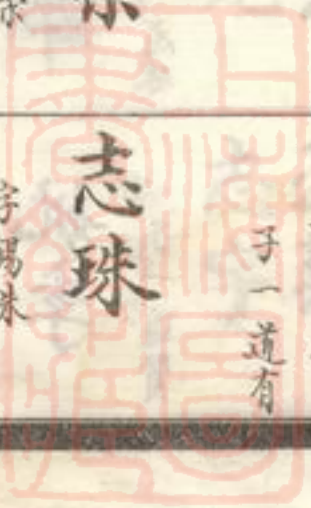 子一道有
志珠
字賜珠